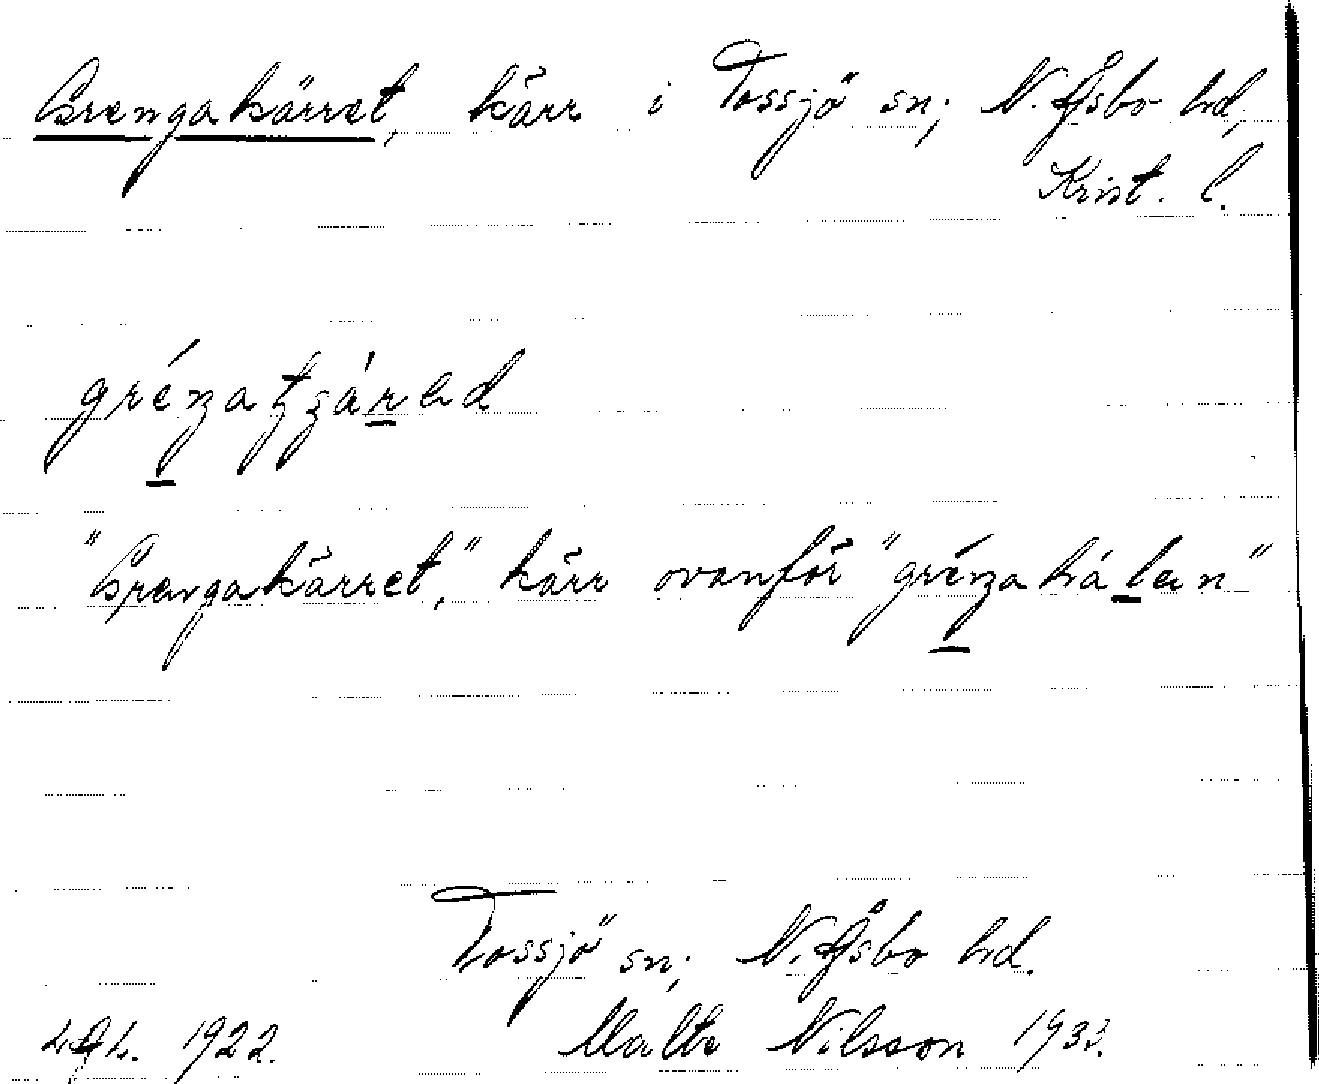 Grengakärret, kärr i Tossjö sn; N. Åsbo hd,
Krist. l.
gréŋatɟáred
"Grengakärret," kärr ovanför "gréŋahálen"
Tossjö sn; N. Åsbo hd.
1922. Malte Nilsson 1933.